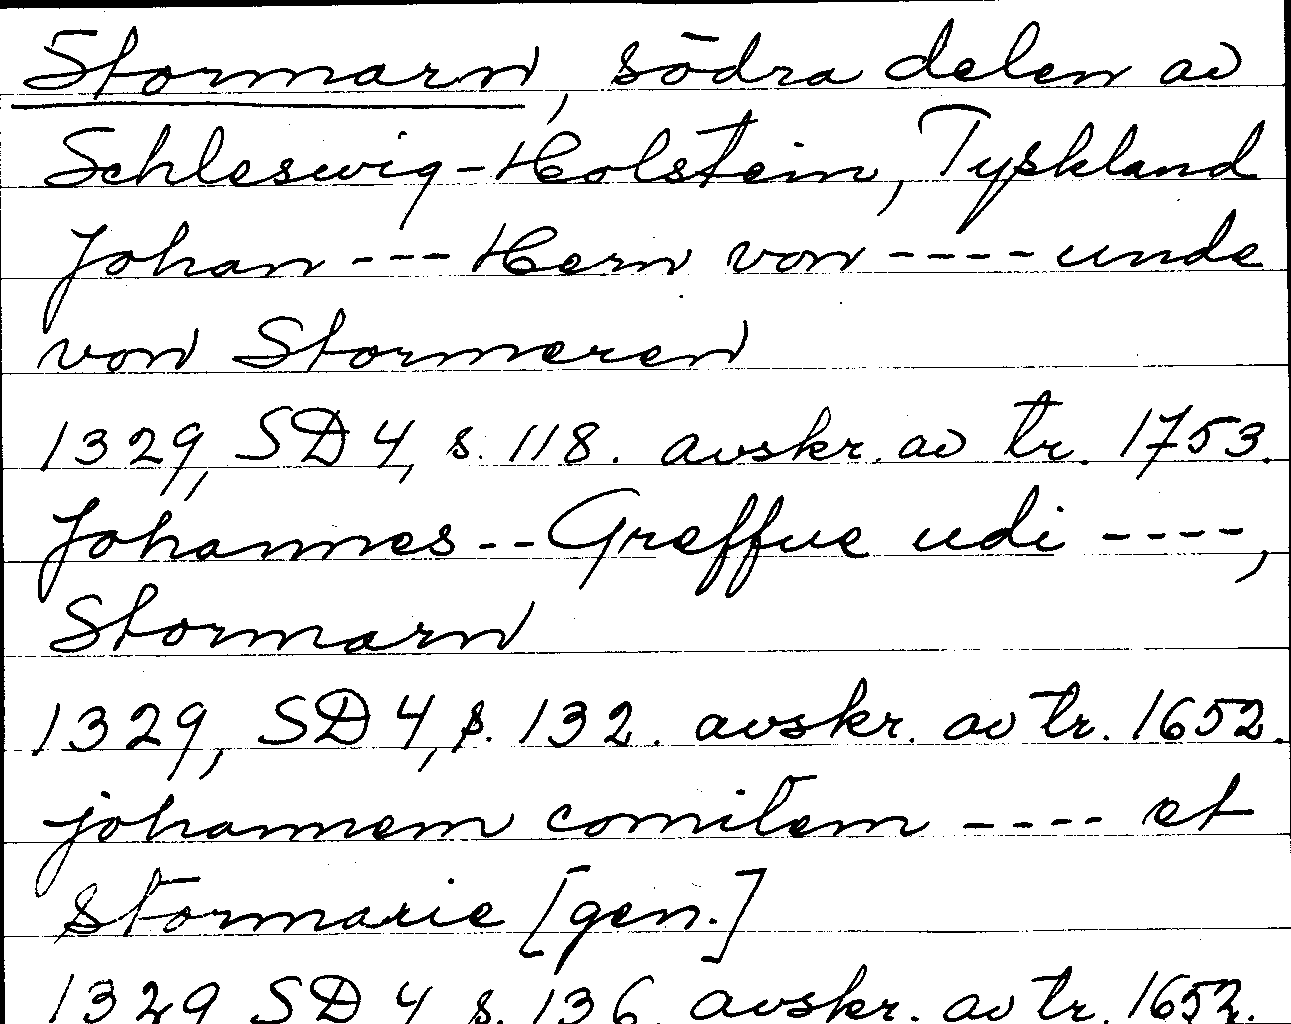 Stormarn, södra delen av
Schleswig-Holstein, Tyskland
Johan --- Hern von ---- unde
von Stormeren
1329, SD 4, s. 118. avskr. av tr. 1753.
Johannes -- Greffue udi ----,
Stormarn
1329, SD 4, s. 132. avskr. av tr. 1652.
johannem comitem ---- et
Stormarie [gen.]
1329 SD 4 s. 136 avskr. av tr. 1652.